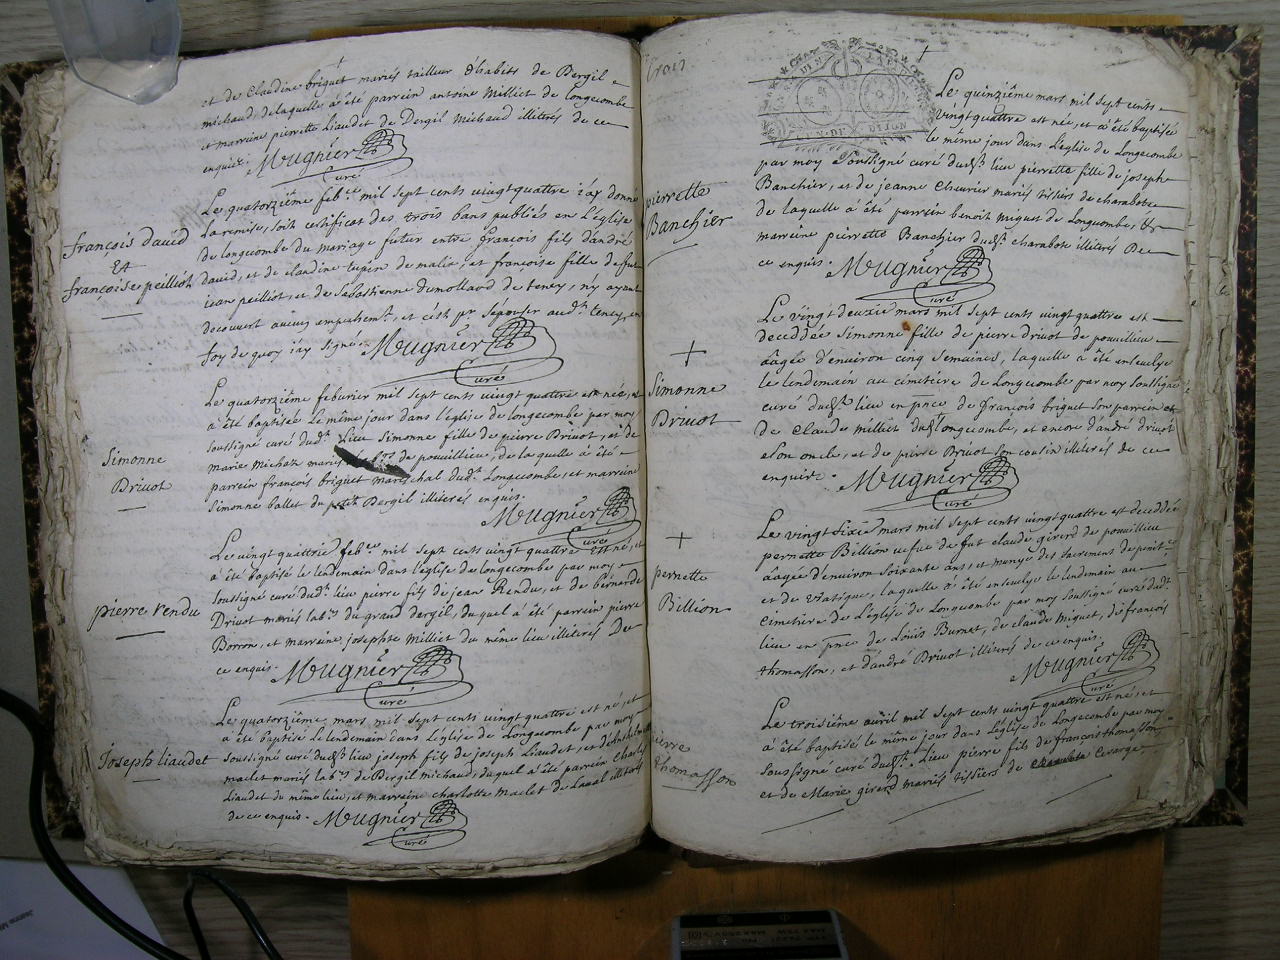 et de Claudine briguet mariés tailleur d'habits de Dergil
michaud, de laquelle a été parrein antoine Milliet de Longecombe
et marreine pierrette Liaudet de Dergil Michaud illiterés de ce
enquis. Mugnier
Curé
françois david
Et
françoise peilliot
Le quatorzième feb.re mil sept cents vingt quattre j'ay donné
La remise, soit certificat des trois bans publiés en L'église
de longecombe du mariage futur entre françois fils d'andré
david, et de claudine de malix, et françoise fille de fut
jean peilliot, et de Sebastienne dumollard de tenay, n'y ayant
decouvert aucun empechem.t, et c'est p.r s'épouser aud.t tenay, en
foy de quoy j'ay signé. Mugnier
Curé
Simonne
Drivot
Le quatorzième feburier mil sept cents vingt quattre est née, et
a été baptisée le même jour dans l'église de longecombe par moy
soussigné curé dud.t Lieu Simonne fille de pierre Drivot, et de
marie michaz mariés de pouvillieu, de laquelle a été
parrein françois briguet mareschal dud.t Longecombe, et marreine
Simonne ballet du petit Dergil illiterés enquis.
Mugnier
Curé
pierre rendu
Le vingt quattriè feb.er mil sept cents vingt quattre est né, et
a été baptisé le lendemain dans l'église de longecombe par moy
soussigné curé dud.t lieu pierre fils de jean Rendu, et de bernarde
Drivot mariés lab.rs du grand dergil, duquel a été parrein pierre
Borron, et marreine josephte milliet du même lieu illiterés De
ce enquis. Mugnier
Curé
Joseph liaudet
Le quatorzième mars mil sept cents vingt quattre est né, et
a été baptisé Le lendemain dans L'église de Longecombe par moy
soussigné curé dudt lieu joseph fils de joseph Liaudet, et
maclet mariés lab.rs de Dergil michaud, duquel a été parrein Charles
Liaudet du même lieu, et marreine charlotte maclet de Laval illiterés
de ce enquis. Mugnier
Curé
trois
Le quinzième mars mil sept cents
vingt quattre est née, et a été baptisée
le même jour dans L'église de Longecombe
pierrette
Banchier
par moy soussigné curé dudt lieu pierrette fille de joseph
Banchier, et de jeanne Chevrier mariés tissiers de charabote
de laquelle a été parrein benoit miguet de Longecombe, &
marreine pierrette Banchier dudt charabote illiterés De
ce enquis. Mugnier
Curé
Simonne
Drivot
Le vingt deuxiè mars mil sept cents vingt quattre est
deceddée Simonne fille de pierre Drivot de pouvillieu
aâgée d'environ cinq Semaines, laquelle a été ensevelye
le lendemain au cimetière de Longecombe par moy soussigné
curé dudt lieu en pnce de françois briguet son parrein et
de Claude milliet dudt longecombe, et encore d'andré drivot
son oncle, et de pierre Drivot son cousin illiterés de ce
enquis. Mugnier
Curé
pernette
Billion
Le vingt Sixiè mars mil sept cents vingt quattre est deceddée
pernette Billion vefve de fut claude girerd de pouvillieu
aâgée d'environ soixante ans, et munye des sacrements de penit.ce
et de Viatique, laquelle a été ensevelye le lendemain au
cimetière de L'église de Longecombe par moy soussigné curé dud.t
lieu en pnce de Louis Burnet, de claude miguet, de françois
thomasson, et d'andré Drivot illiterés de ce enquis.
Mugnier
Curé
pierre
thomasson
Le troisième avril mil sept cents vingt quattre est né, et
a été baptisé le même jour dans L'église de Longecombe par moy
soussigné curé dudt. Lieu pierre fils de françois thomasson
et de Marie girerd mariés tissiers de